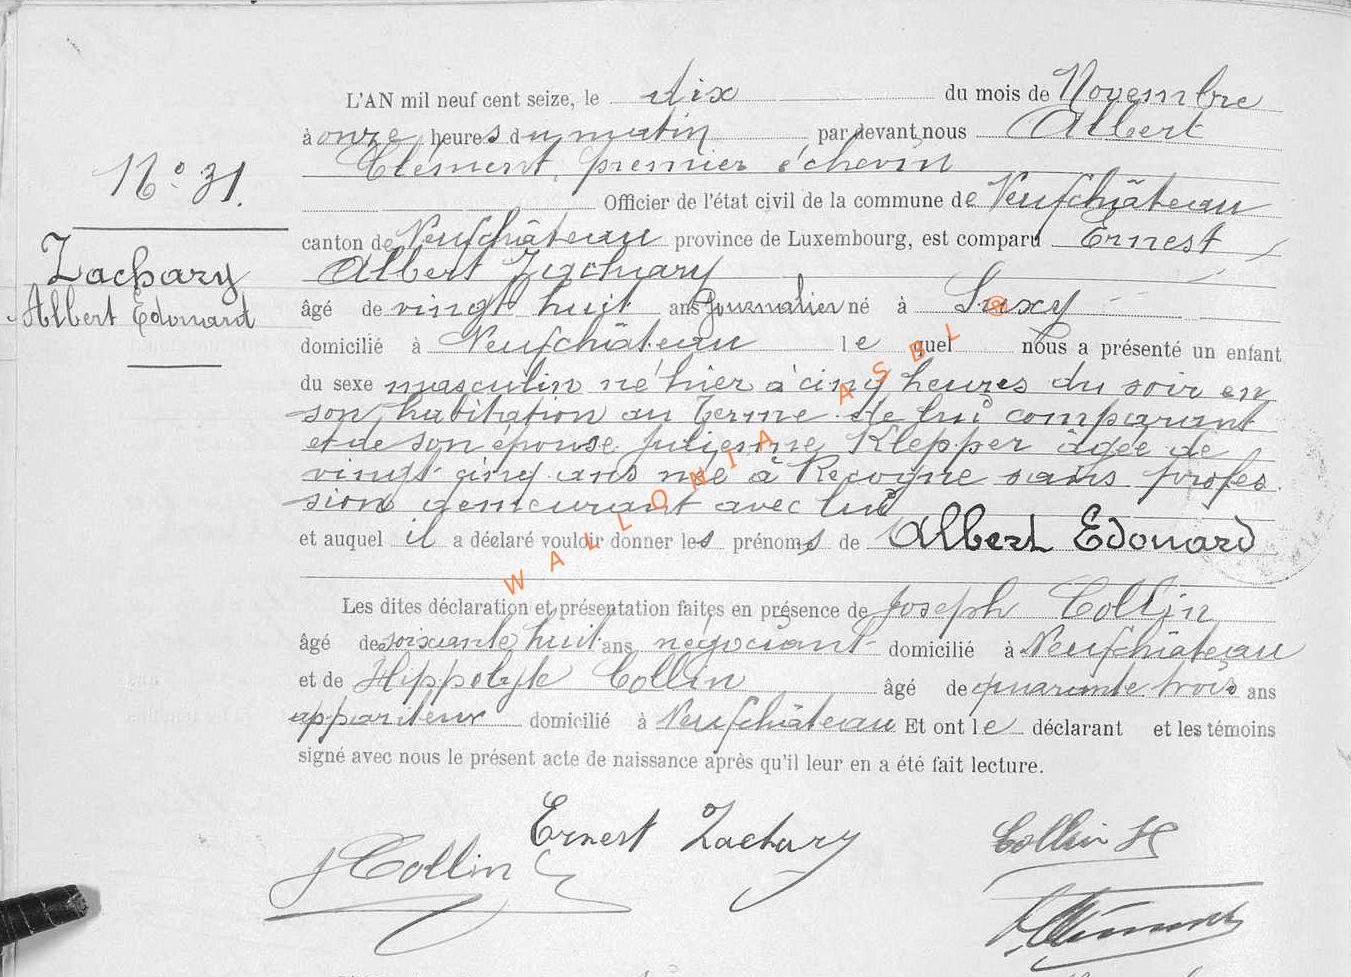 N° 31.
Zachary
Albert Edouard
L'AN mil neuf cent seize, le dix du mois de Novembre
à onze heures du matin par devant nous Albert
Clément, premier échevin
Officier de l'état civil de la commune de Neufchâteau
canton de Neufchâteau province de Luxembourg, est comparu Ernest
Albert Zachary
âgé de vingt huit ans Journalier né à Suxy
domicilié à Neufchâteau lequel nous a présenté un enfant
du sexe masculin né hier à cinq heures du soir en
son habitation au Terme de lui comparant
et de son épouse Julienne Klepper âgée de
vingt cinq ans née à Recogne sans profes
sion demeurant avec lui
et auquel il a déclaré vouloir donner les prénoms de Albert Edouard
Les dites déclaration et présentation faites en présence de Joseph Collin
âgé de soixante huit ans négociant domicilié à Neufchâteau
et de Hippolyte Collin âgé de quarante trois ans
appariteur domicilié à Neufchâteau Et ont le déclarant et les témoins
signé avec nous le présent acte de naissance après qu'il leur en a été fait lecture.
Ernest Zachary
J Collin
Collin H
A Clément
WALLONIA ASBL ®